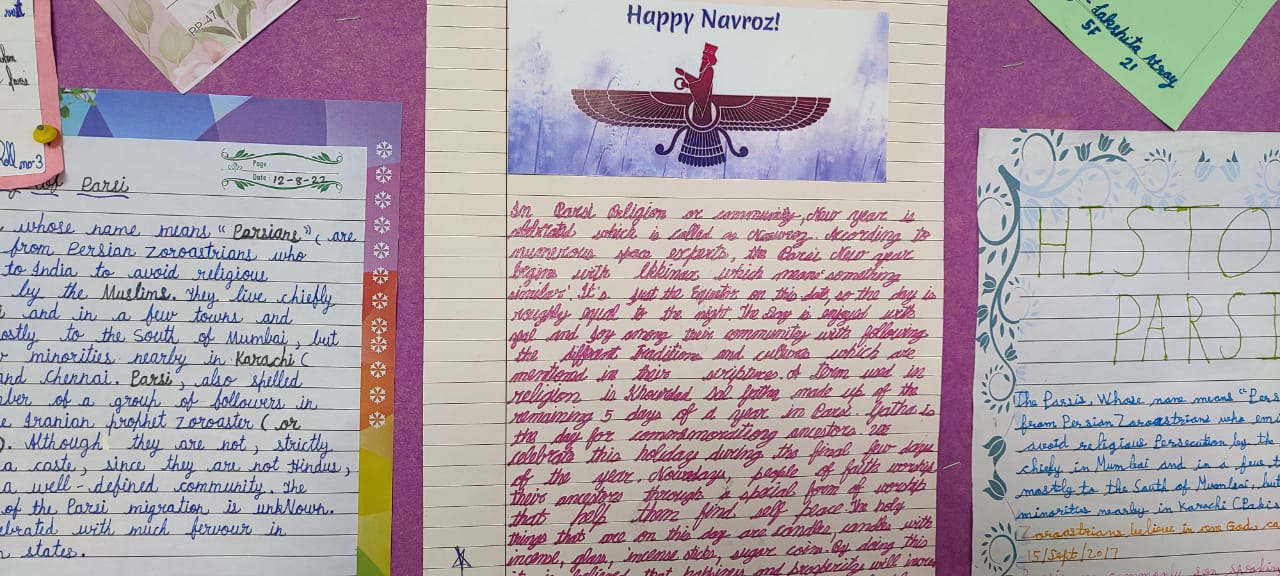 RP-47
Roll no-3
of Parsi
Page :
Date : 12-8-22
whose name means "Parsians" ( are
from Persian Zoroastrians who
to India to avoid religious
by the Muslims. They live chiefly
and in a few towns and
ostly to the South of Mumbai, but
minorities nearby in Karachi (
and Chennai. Parsi, also spelled
ber of a group of followers in
e Iranian prophet Zoroaster ( or
). Although they are not, strictly
a caste, since they are not Hindus,
a well-defined community. The
of the Parsi migration is unkNown.
elebrated with much fervour in
n states.
Happy Navroz!
In Parsi Religion or community, New year is
celebrated which is called as Nowroz. According to
numerous space experts, the Parsi New year
begins with Ekkinox which means something
similar'. It's just the Equator on this date, so the day is
roughly equal to the night. The Day is enjoyed with
zeal and Joy among their community with following
the different traditions and cultures which are
mentioned in their scriptures. A Storm used in
religion is Khourdad Sal fatha, made up of the
remaining 5 days of a year in Parsi. Gatha is
the day for commemorationg ancestors. We
celebrate this holidays during the final few days
of the year. Nowadays, people of faith worship
their ancestors through a special form of worship
that help them find self peace. The holy
things that are on this day are candles, candles with
incense, glass, incense sticks, sugar coins. By doing this
it is believed that happiness and prosperity will increa
Lakshita
5F
21
HISTO
PARSI
The Parsis, Whose name means "Pers
from Persian Zoroastrians who em
avoid religious Persecution by the
chiefy in Mumbai and in a few t
mostly to the South of Mumbai, but
minorities nearby in Karachi (Pakis
Zoroastrians believe in one God, ca
15/Sept/2017